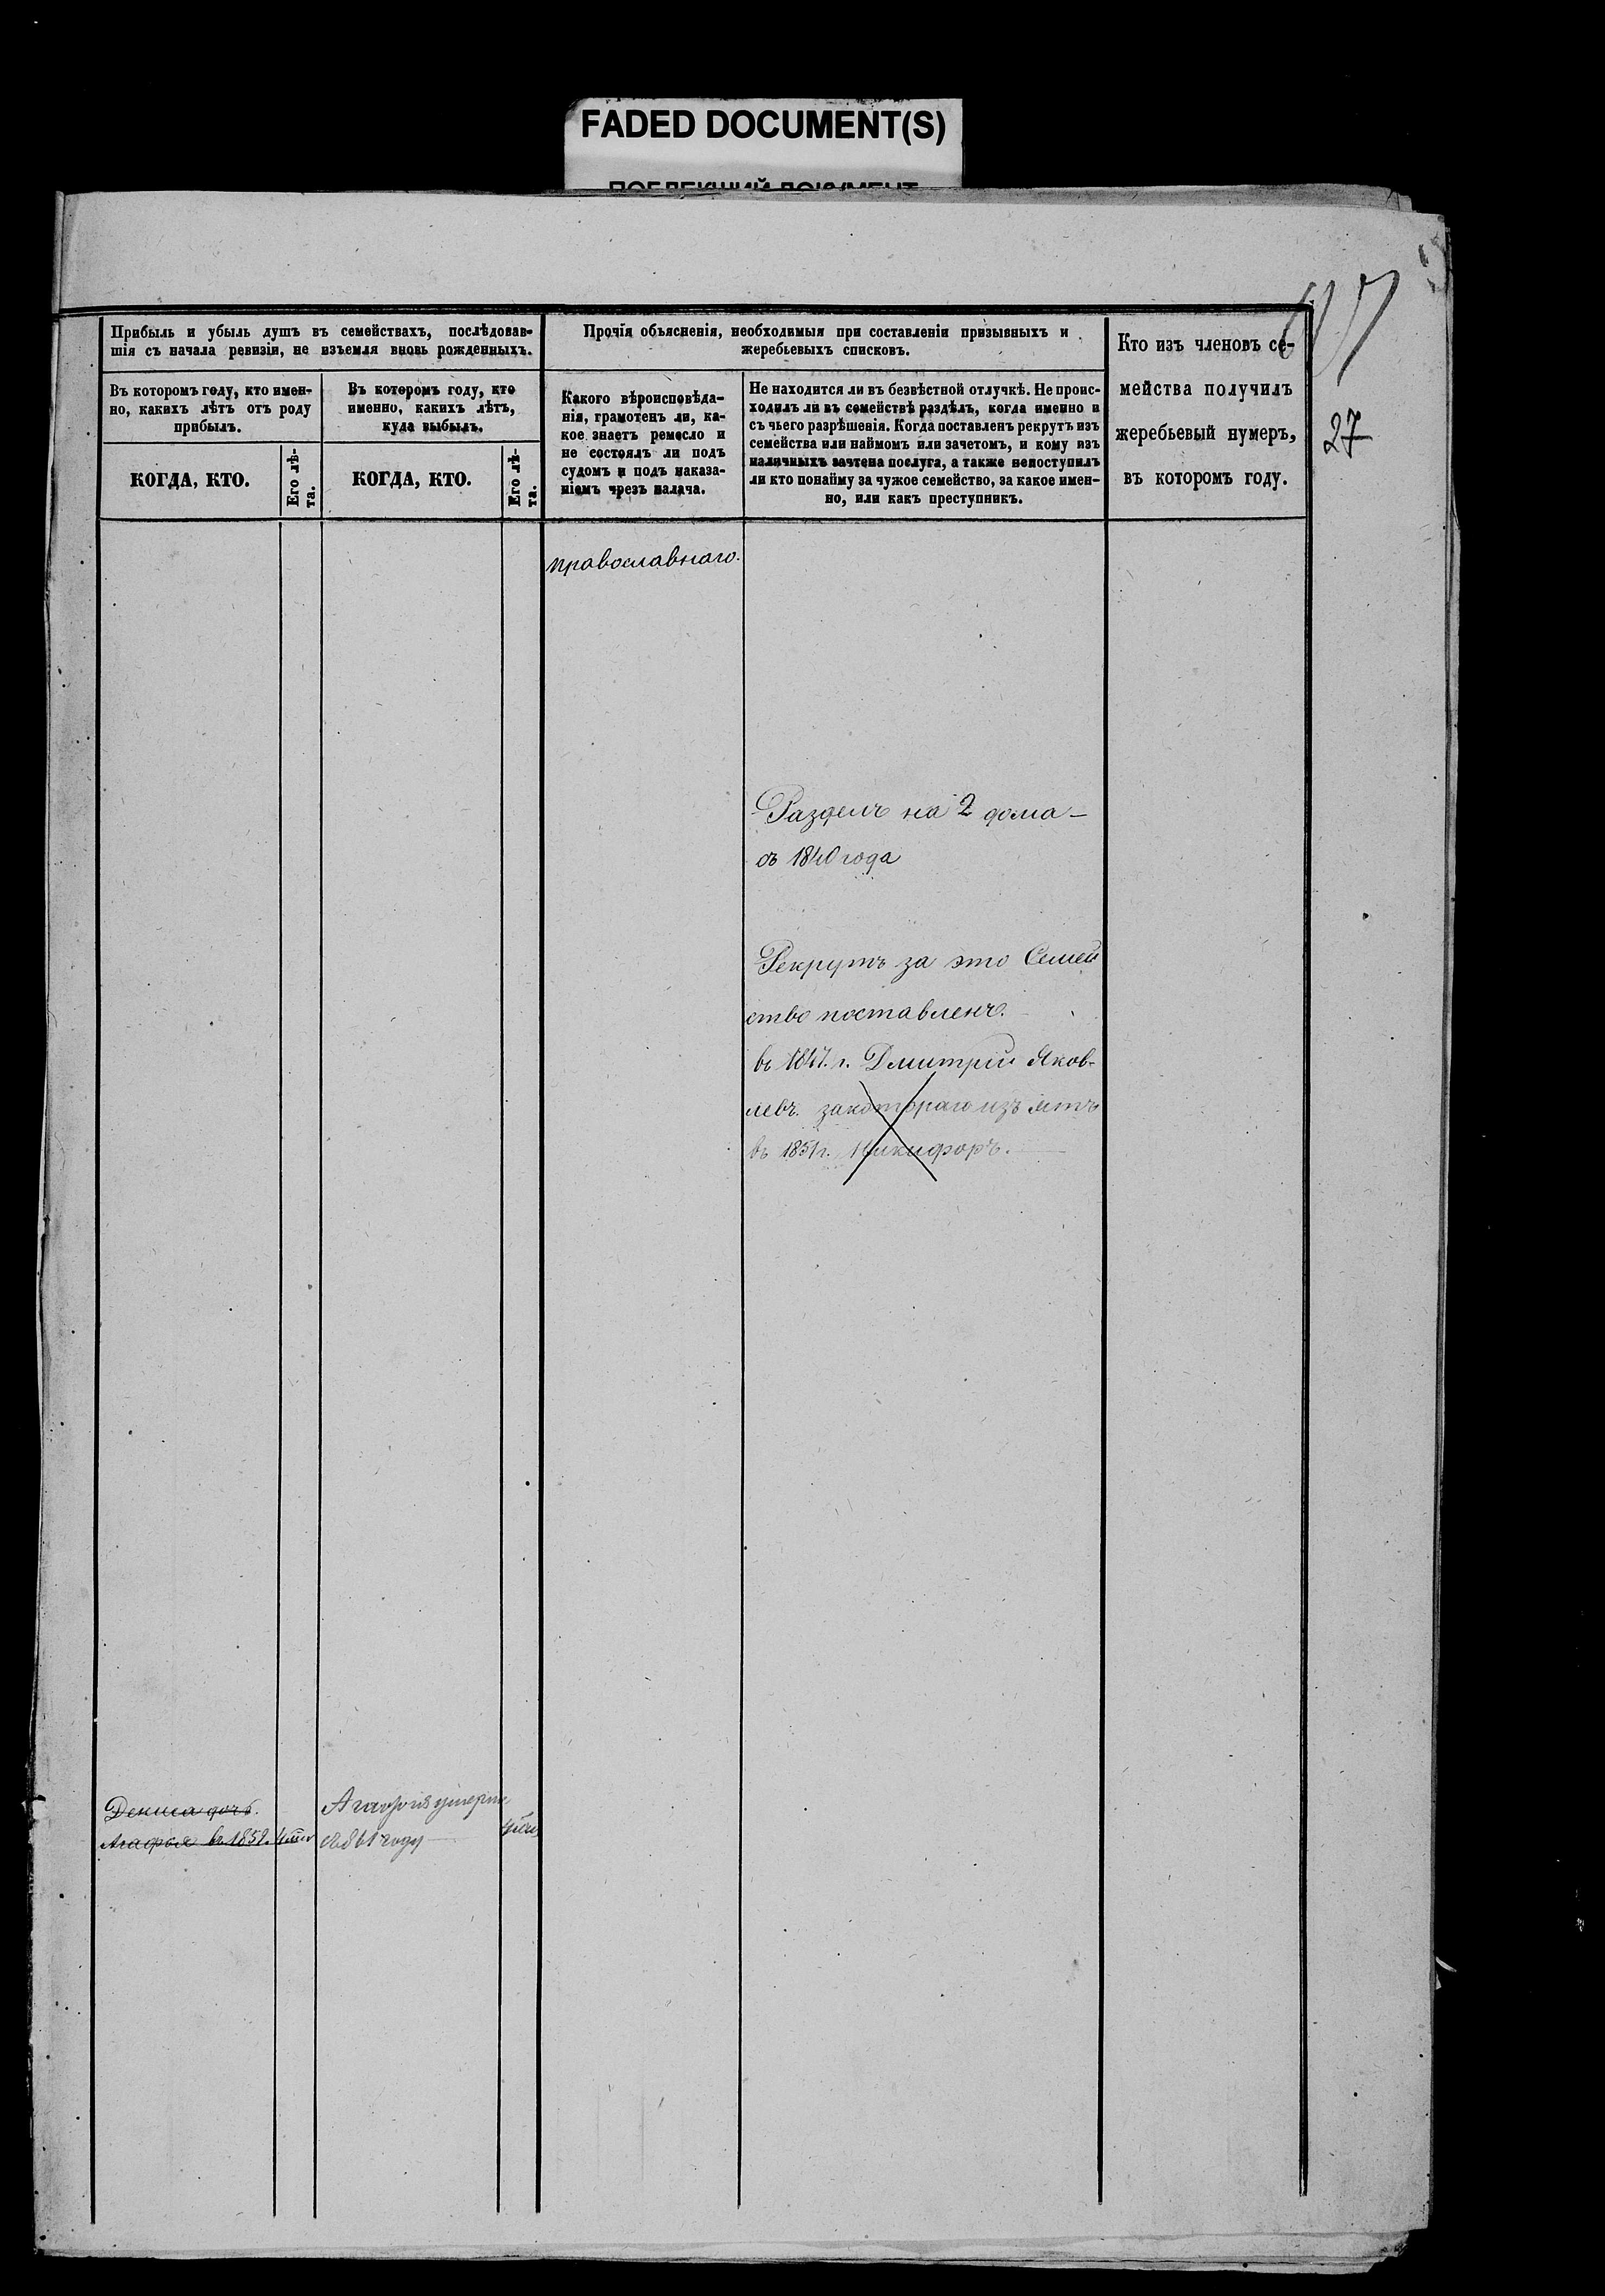 FADED DOCUMENT(S)
Прибыль и убыль душъ въ семействахъ, послѣдовав-
шія съ начала ревизіи, не изъемля вновь рожденныхъ.
Въ которомъ году, кто имен-
но, какихъ лѣтъ отъ роду
прибылъ.
КОГДА, КТО.
Его лѣ-
та.
Въ которомъ году, кто
именно, какихъ лѣтъ,
куда выбылъ.
КОГДА, КТО.
Его лѣ-
та.
Прочія объясненія, необходимыя при составленіи призывныхъ и
жеребьевыхъ списковъ.
Какого вѣроисповѣда-
нія, грамотенъ ли, ка-
кое знаетъ ремесло и
не состоялъ ли подъ
судомъ и подъ наказа-
ніемъ чрезъ палача.
Не находится ли въ безвѣстной отлучкѣ. Не проис-
ходилъ ли въ семействѣ раздѣлъ, когда именно и
съ чьего разрѣшенія. Когда поставленъ рекрутъ изъ
семейства или наймомъ или зачетомъ, и кому изъ
наличныхъ зачтена послуга, а также непоступилъ
ли кто понайму за чужое семейство, за какое имен-
но, или какъ преступникъ.
Кто изъ членовъ се-
мейства получилъ
жеребьевый нумеръ,
въ которомъ году.
27
православнаго.
Разделъ на 2 дома —
съ 1840 года
Рекрутъ за это Семей
ство поставленъ.
въ 1847. г. Дмитрій Яков-
левъ. закотораго изъятъ
въ 1851 г. Никифоръ. —
Дениса дочь.
Агафья въ 1859.
Агафія умерла
году —